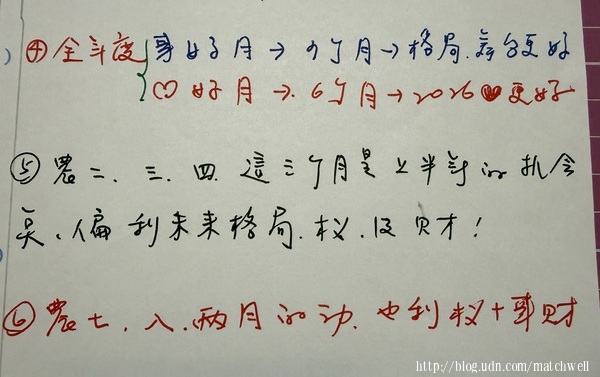 ④ 全年度 事 好月 → 7个月 → 格局. 更好
♡ 好月 → 6个月 → 2026 ♥ 更好
⑤ 農二、三、四 這三个月是上半年的机会
矣、偏利未来格局、权、及财！
⑥ 農七、八、两月的动、也利权+事财
http://blog.udn.com/matchwell